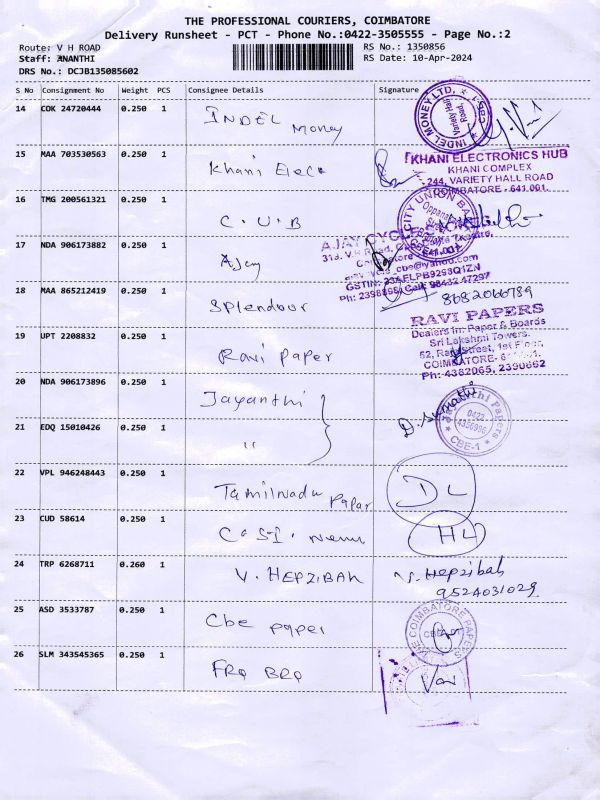 THE PROFESSIONAL COURIERS, COIMBATORE
Delivery Runsheet - PCT - Phone No.:0422-3505555 - Page No.:2
Route: V H ROAD
RS No.: 1350856
Staff: ANANTHI
RS Date: 10-Apr-2024
DRS No.: DCJB135085602
S No Consignment No Weight PCS Consignee Details Signature
14 COK 24720444 0.250 1 INDEL Money
INDEL MONEY LTD. Variety Hall Road,
15 MAA 703530563 0.250 1 Khani Elecs
KHANI ELECTRONICS HUB
KHANI COMPLEX
244, VARIETY HALL ROAD
COIMBATORE - 641 001.
16 TMG 200561321 0.250 1 C.U.B
CITY UNION BANK
17 NDA 906173882 0.250 1 Ajay
AJAY CYCLE
Ph: 2398895, Cell: 98432 47297
18 MAA 865212419 0.250 1 Splendour
8682066789
19 UPT 2208832 0.250 1 Ravi paper
RAVI PAPERS
Dealers in: Paper & Boards
Sri Lakshmi Towers,
52, Street, 1st Floor,
COIMBATORE-
Ph: 4382065, 2390662
20 NDA 906173896 0.250 1 Jayanthi
D. Sumathi
21 EDQ 15010426 0.250 1 "
Papers
0422
4356996
CBE-1
22 VPL 946248443 0.250 1 Tamilnadu Papar
DL
23 CUD 58614 0.250 1 C.S.I.
HL
24 TRP 6268711 0.260 1 V. HEPZIBAH
V. Hepzibah
9524031029
25 ASD 3533787 0.250 1 Cbe paper
THE COIMBATORE PAPERS
26 SLM 343545365 0.250 1 FRQ BRQ